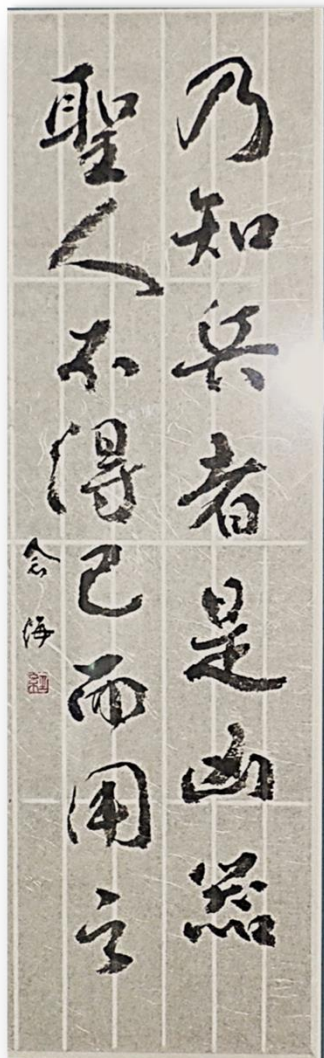 乃知兵者是凶器
聖人不得已而用之
念海